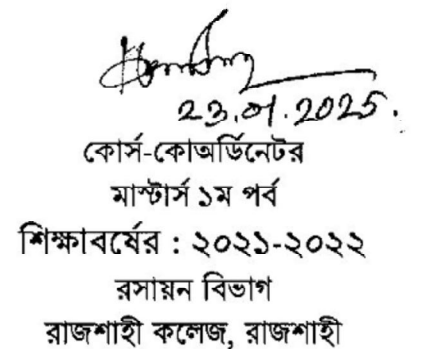 23.01.2025.
কোর্স-কোঅর্ডিনেটর
মাস্টার্স ১ম পর্ব
শিক্ষাবর্ষের : ২০২১-২০২২
রসায়ন বিভাগ
রাজশাহী কলেজ, রাজশাহী